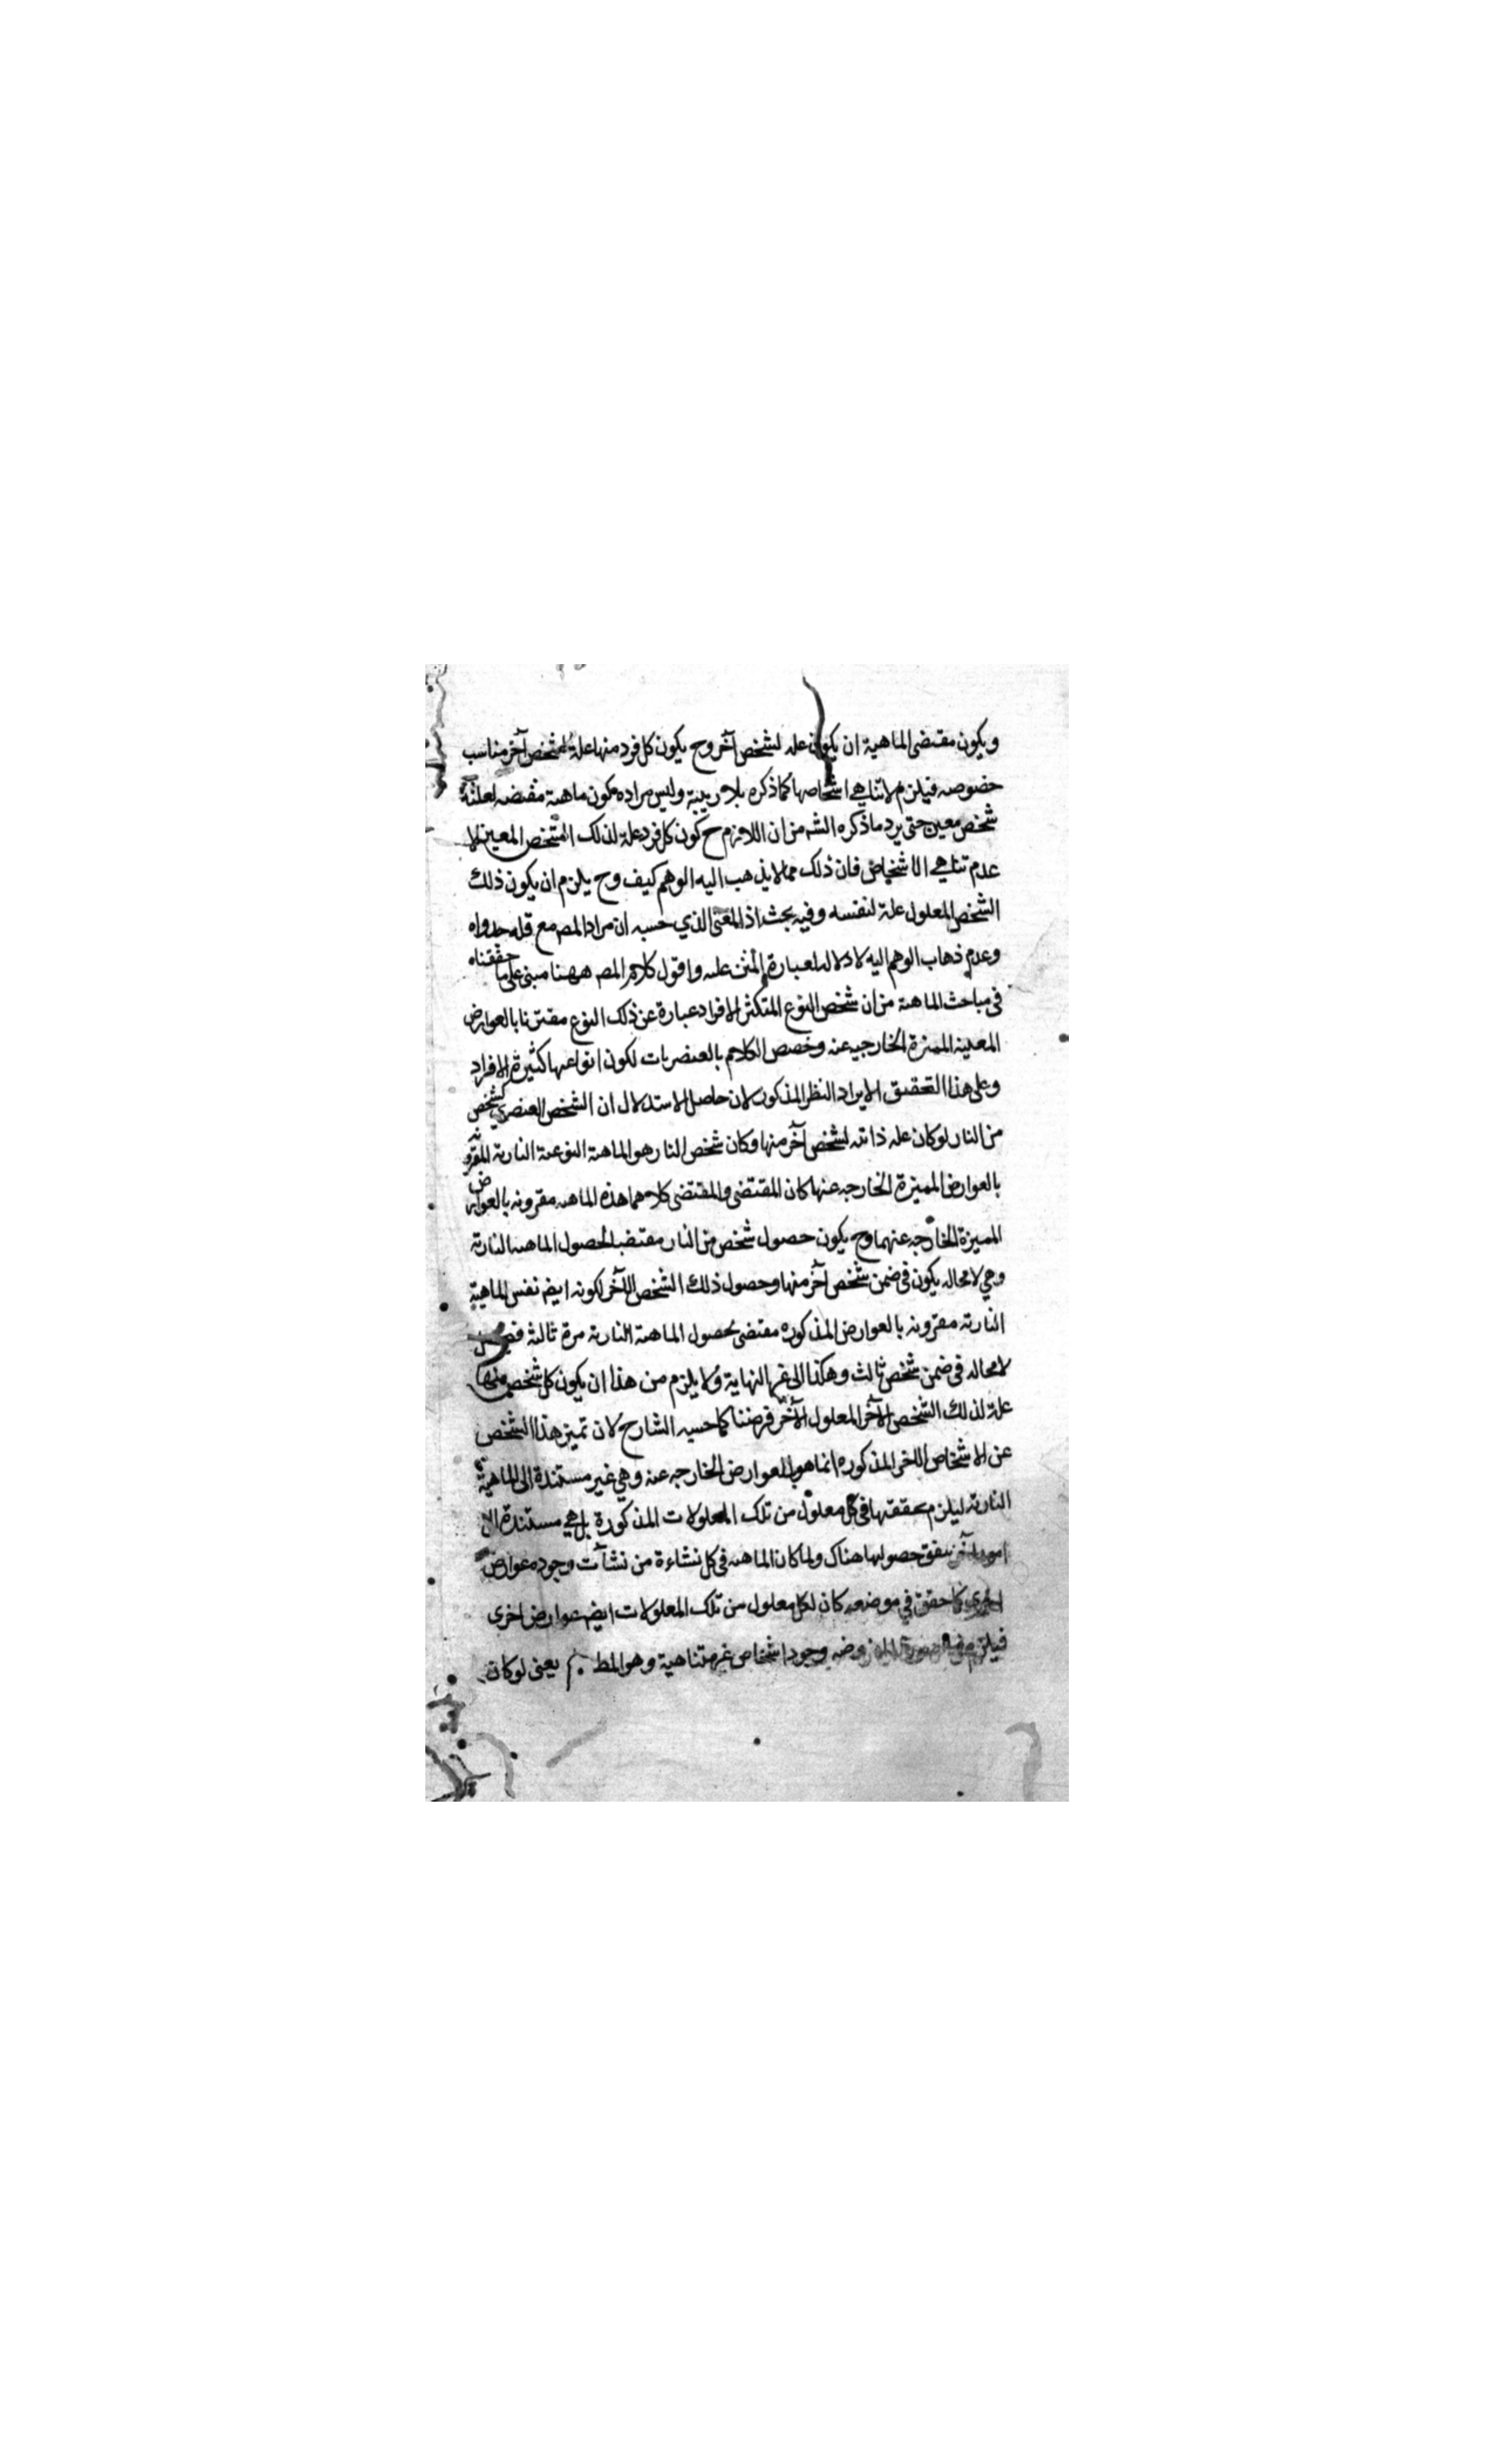 ويكون مقتضى الماهية ان يكون علة لشخص آخر وح يكون كل فرد منها علة لشخص آخر مناسب
خصوصه فيلزم لاتناهي اشخاصها كما ذكره بلا ريبة وليس مراده كون ماهية مقتضية لعلية
شخص معين حتى يرد ما ذكره الشه من ان اللازم ح كون كل فرد علة لذلك الشخص المعين لا
عدم تناهي الاشخاص فان ذلك مما لا يذهب اليه الوهم كيف وح يلزم ان يكون ذلك
الشخص المعلول علة لنفسه وفيه بحث اذ المعنى الذي حسبه ان مراد المصه مع قلة جدواه
وعدم ذهاب الوهم اليه لا دلالة لعبارة المتن عليه واقول كلام المصه ههنا مبنى على ما حققناه
في مباحث الماهية من ان شخص النوع المتكثر الافراد عبارة عن ذلك النوع مقترنا بالعوارض
المعينة المميزة الخارجيه عنه وخصص الكلام بالعنصريات لكون انواعها كثيرة الافراد
وعلى هذا التحقيق لا يراد النظر المذكور لان حاصل الاستدلال ان الشخص العنصري كشخص
من النار لو كان علة ذاتية لشخص آخر منها وكان شخص النار هو الماهية النوعية النارية المقرونة
بالعوارض المميزة الخارجه عنها كان المقتضى والمقتضى كلاهما هذه الماهيه مقرونه بالعوارض
المميزة الخارجه عنهما وح يكون حصول شخص من النار مقتضيا لحصول الماهيه النارية
وهي لا محاله يكون في ضمن شخص آخر منها وحصول ذلك الشخص الآخر لكونه ايضه نفس الماهية
النارية مقرونه بالعوارض المذكوره مقتضى لحصول الماهية النارية مرة ثالثة
لا محاله في ضمن شخص ثالث وهكذا الى غير النهاية ولا يلزم من هذا ان يكون كل شخص منها
علة لذلك الشخص الآخر المعلول الآخر فرضنا كما حسبه الشارح لان تميز هذا الشخص
عن الاشخاص الاخر المذكوره انما هو بالعوارض الخارجه عنه وهي غير مستندة الى الماهية
النارية ليلزم تحققها في كل معلول من تلك المعلولات المذكورة بل هي مستندة الى
امور اخر يتفق حصولها هناك ولما كان الماهيه في كل نشاءة من نشآت وجوده عوارض
اخرى كما حقق في موضعه كان لكل معلول من تلك المعلولات ايضه عوارض اخرى
فيلزم وجود اشخاص غير متناهية وهو المط . م يعنى لو كان